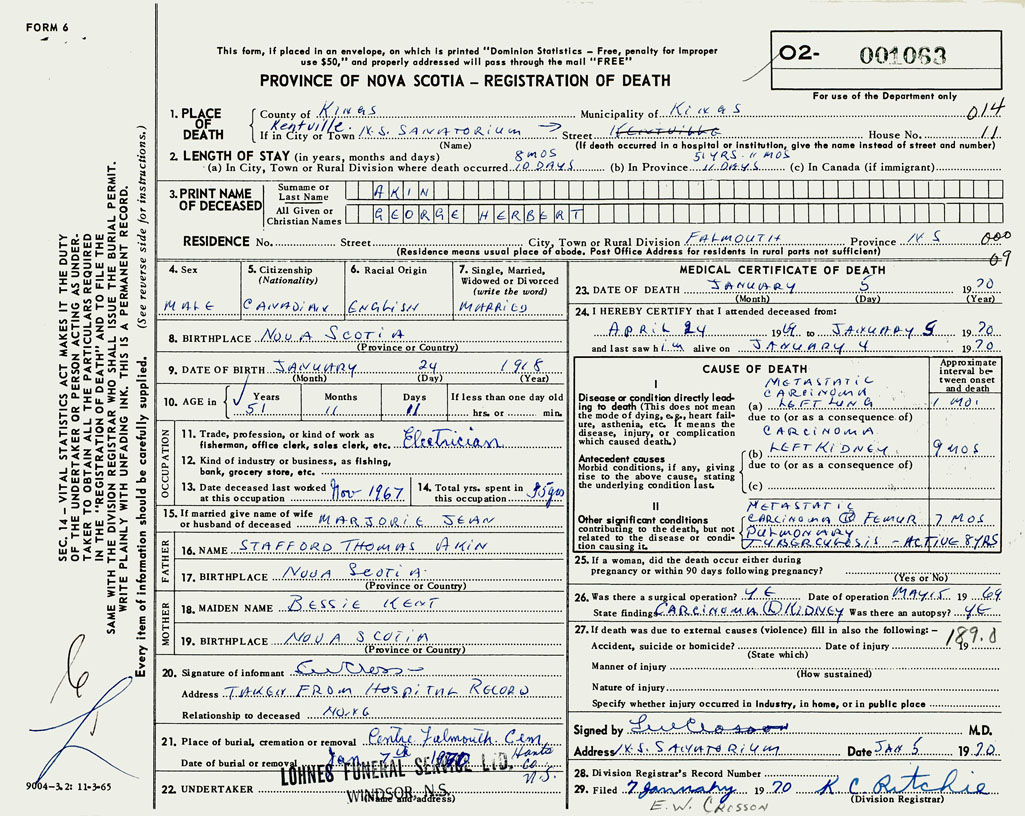 FORM 6
This form, if placed in an envelope, on which is printed "Dominion Statistics – Free, penalty for improper
use $50," and properly addressed will pass through the mail "FREE"
PROVINCE OF NOVA SCOTIA – REGISTRATION OF DEATH
O2- 001063
For use of the Department only
014
1. PLACE OF DEATH
County of KINGS Municipality of KINGS
Kentville
If in City or Town N.S. SANATORIUM → Street KENTVILLE House No. 11
(Name) (If death occurred in a hospital or institution, give the name instead of street and number)
2. LENGTH OF STAY (in years, months and days) 8 MOS 51 YRS - 11 MOS
(a) In City, Town or Rural Division where death occurred 10 DAYS (b) In Province 11 DAYS (c) In Canada (if immigrant)
3. PRINT NAME OF DECEASED
Surname or Last Name AKIN
All Given or Christian Names GEORGE HERBERT
RESIDENCE No. Street City, Town or Rural Division FALMOUTH Province N S 000
(Residence means usual place of abode. Post Office Address for residents in rural parts not sufficient) 09
4. Sex MALE
5. Citizenship (Nationality) CANADIAN
6. Racial Origin ENGLISH
7. Single, Married, Widowed or Divorced (write the word) MARRIED
8. BIRTHPLACE NOVA SCOTIA
(Province or Country)
9. DATE OF BIRTH JANUARY 24 1918
(Month) (Day) (Year)
10. AGE in Years 51 Months 11 Days 11 If less than one day old hrs. or min.
OCCUPATION
11. Trade, profession, or kind of work as
fisherman, office clerk, sales clerk, etc. Electrician
12. Kind of industry or business, as fishing,
bank, grocery store, etc.
13. Date deceased last worked at this occupation Nov 1967
14. Total yrs. spent in this occupation 35 yrs
15. If married give name of wife
or husband of deceased MARJORIE JEAN
FATHER
16. NAME STAFFORD THOMAS AKIN
17. BIRTHPLACE NOVA SCOTIA
(Province or Country)
MOTHER
18. MAIDEN NAME BESSIE KENT
19. BIRTHPLACE NOVA SCOTIA
(Province or Country)
20. Signature of informant
Address TAKEN FROM HOSPITAL RECORD
Relationship to deceased NONE
21. Place of burial, cremation or removal Centre Falmouth Cem
Date of burial or removal Jan 7th 1970 Hants Co. N.S.
LOHNES FUNERAL SERVICE LTD.
22. UNDERTAKER WINDSOR, N.S.
(Name and address)
MEDICAL CERTIFICATE OF DEATH
23. DATE OF DEATH JANUARY 5 1970
(Month) (Day) (Year)
24. I HEREBY CERTIFY that I attended deceased from:
APRIL 24 1969 to JANUARY 5 1970
and last saw him alive on JANUARY 4 1970
CAUSE OF DEATH
Approximate interval between onset and death
I
Disease or condition directly leading to death (This does not mean the mode of dying, e.g., heart failure, asthenia, etc. It means the disease, injury, or complication which caused death.)
METASTATIC
CARCINOMA
(a) LEFT LUNG 1 MO.
due to (or as a consequence of)
CARCINOMA
(b) LEFT KIDNEY 9 MOS
due to (or as a consequence of)
(c)
Antecedent causes
Morbid conditions, if any, giving rise to the above cause, stating the underlying condition last.
II
Other significant conditions contributing to the death, but not related to the disease or condition causing it.
METASTATIC
CARCINOMA R FEMUR 7 MOS
PULMONARY
TUBERCULOSIS - ACTIVE 8 YRS
25. If a woman, did the death occur either during
pregnancy or within 90 days following pregnancy?
(Yes or No)
26. Was there a surgical operation? YE Date of operation MAY 15 1969
State finding CARCINOMA L KIDNEY Was there an autopsy? YE
27. If death was due to external causes (violence) fill in also the following:– 189.0
Accident, suicide or homicide? Date of injury 19
(State which)
Manner of injury
(How sustained)
Nature of injury
Specify whether injury occurred in industry, in home, or in public place
Signed by M.D.
Address N.S. SANATORIUM Date JAN 5 1970
28. Division Registrar's Record Number
29. Filed 7 January 1970 K C Ritchie
(Division Registrar)
E.W. CROSSON
SEC. 14 – VITAL STATISTICS ACT MAKES IT THE DUTY
OF THE UNDERTAKER OR PERSON ACTING AS UNDER-
TAKER TO OBTAIN ALL THE PARTICULARS REQUIRED
IN THE "REGISTRATION OF DEATH" AND TO FILE THE
SAME WITH THE DIVISION REGISTRAR WHO SHALL ISSUE THE BURIAL PERMIT.
WRITE PLAINLY WITH UNFADING INK. THIS IS A PERMANENT RECORD.
Every item of information should be carefully supplied. (See reverse side for instructions.)
9004–3.2: 11-3-65